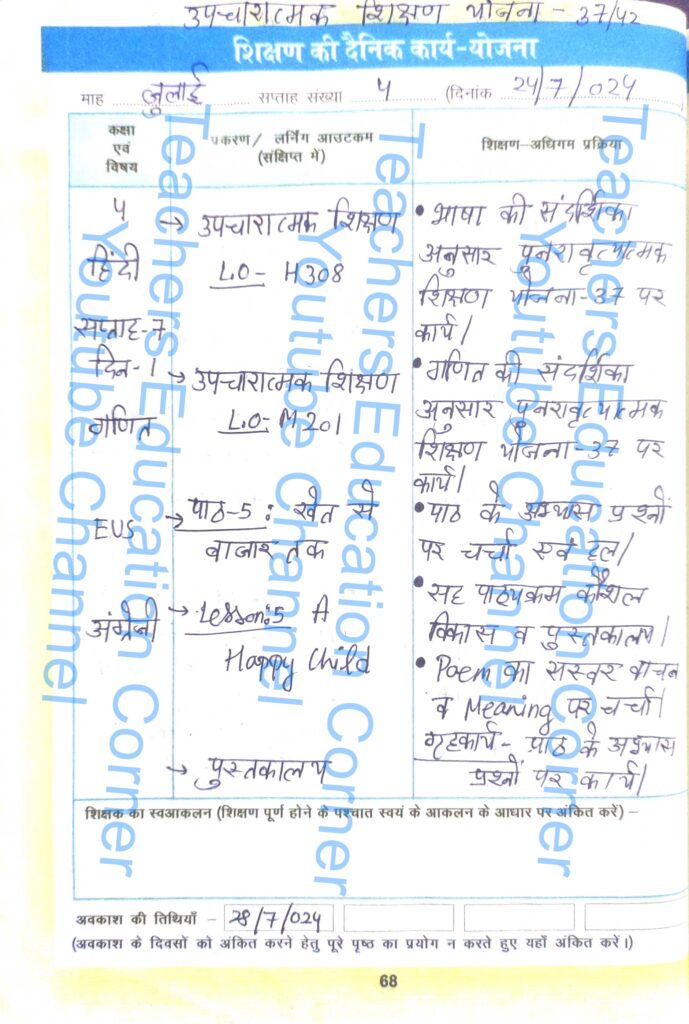 उपचारात्मक शिक्षण योजना - 37/42
शिक्षण की दैनिक कार्य-योजना
माह जुलाई सप्ताह संख्या 4 (दिनांक 24/7/024
कक्षा एवं विषय
प्रकरण/ लर्निंग आउटकम (संक्षिप्त में)
शिक्षण-अधिगम प्रक्रिया
5
हिंदी
सप्ताह-7
दिन-1
गणित
EVS
अंग्रेजी
→ उपचारात्मक शिक्षण
L.O- H308
→ उपचारात्मक शिक्षण
L.O- M201
→ पाठ-5 : खेत से
बाजार तक
→ Lesson:5 A
Happy Child
→ पुस्तकालय
• भाषा की संदर्शिका
अनुसार पुनरावृत्यात्मक
शिक्षण योजना-37 पर
कार्य।
• गणित की संदर्शिका
अनुसार पुनरावृत्यात्मक
शिक्षण योजना-37 पर
कार्य।
• पाठ के अभ्यास प्रश्नों
पर चर्चा एवं हल।
• सह पाठ्यक्रम कौशल
विकास व पुस्तकालय।
• Poem का सस्वर वाचन
व Meaning पर चर्चा।
गृहकार्य- पाठ के अभ्यास
प्रश्नों पर कार्य।
शिक्षक का स्वआकलन (शिक्षण पूर्ण होने के पश्चात स्वयं के आकलन के आधार पर अंकित करें) –
अवकाश की तिथियाँ – 28/7/024
(अवकाश के दिवसों को अंकित करने हेतु पूरे पृष्ठ का प्रयोग न करते हुए यहाँ अंकित करें।)
68
Teachers Education Corner
Youtube Channel
Teachers Education Corner
Youtube Channel
Teachers Education Corner
Youtube Channel